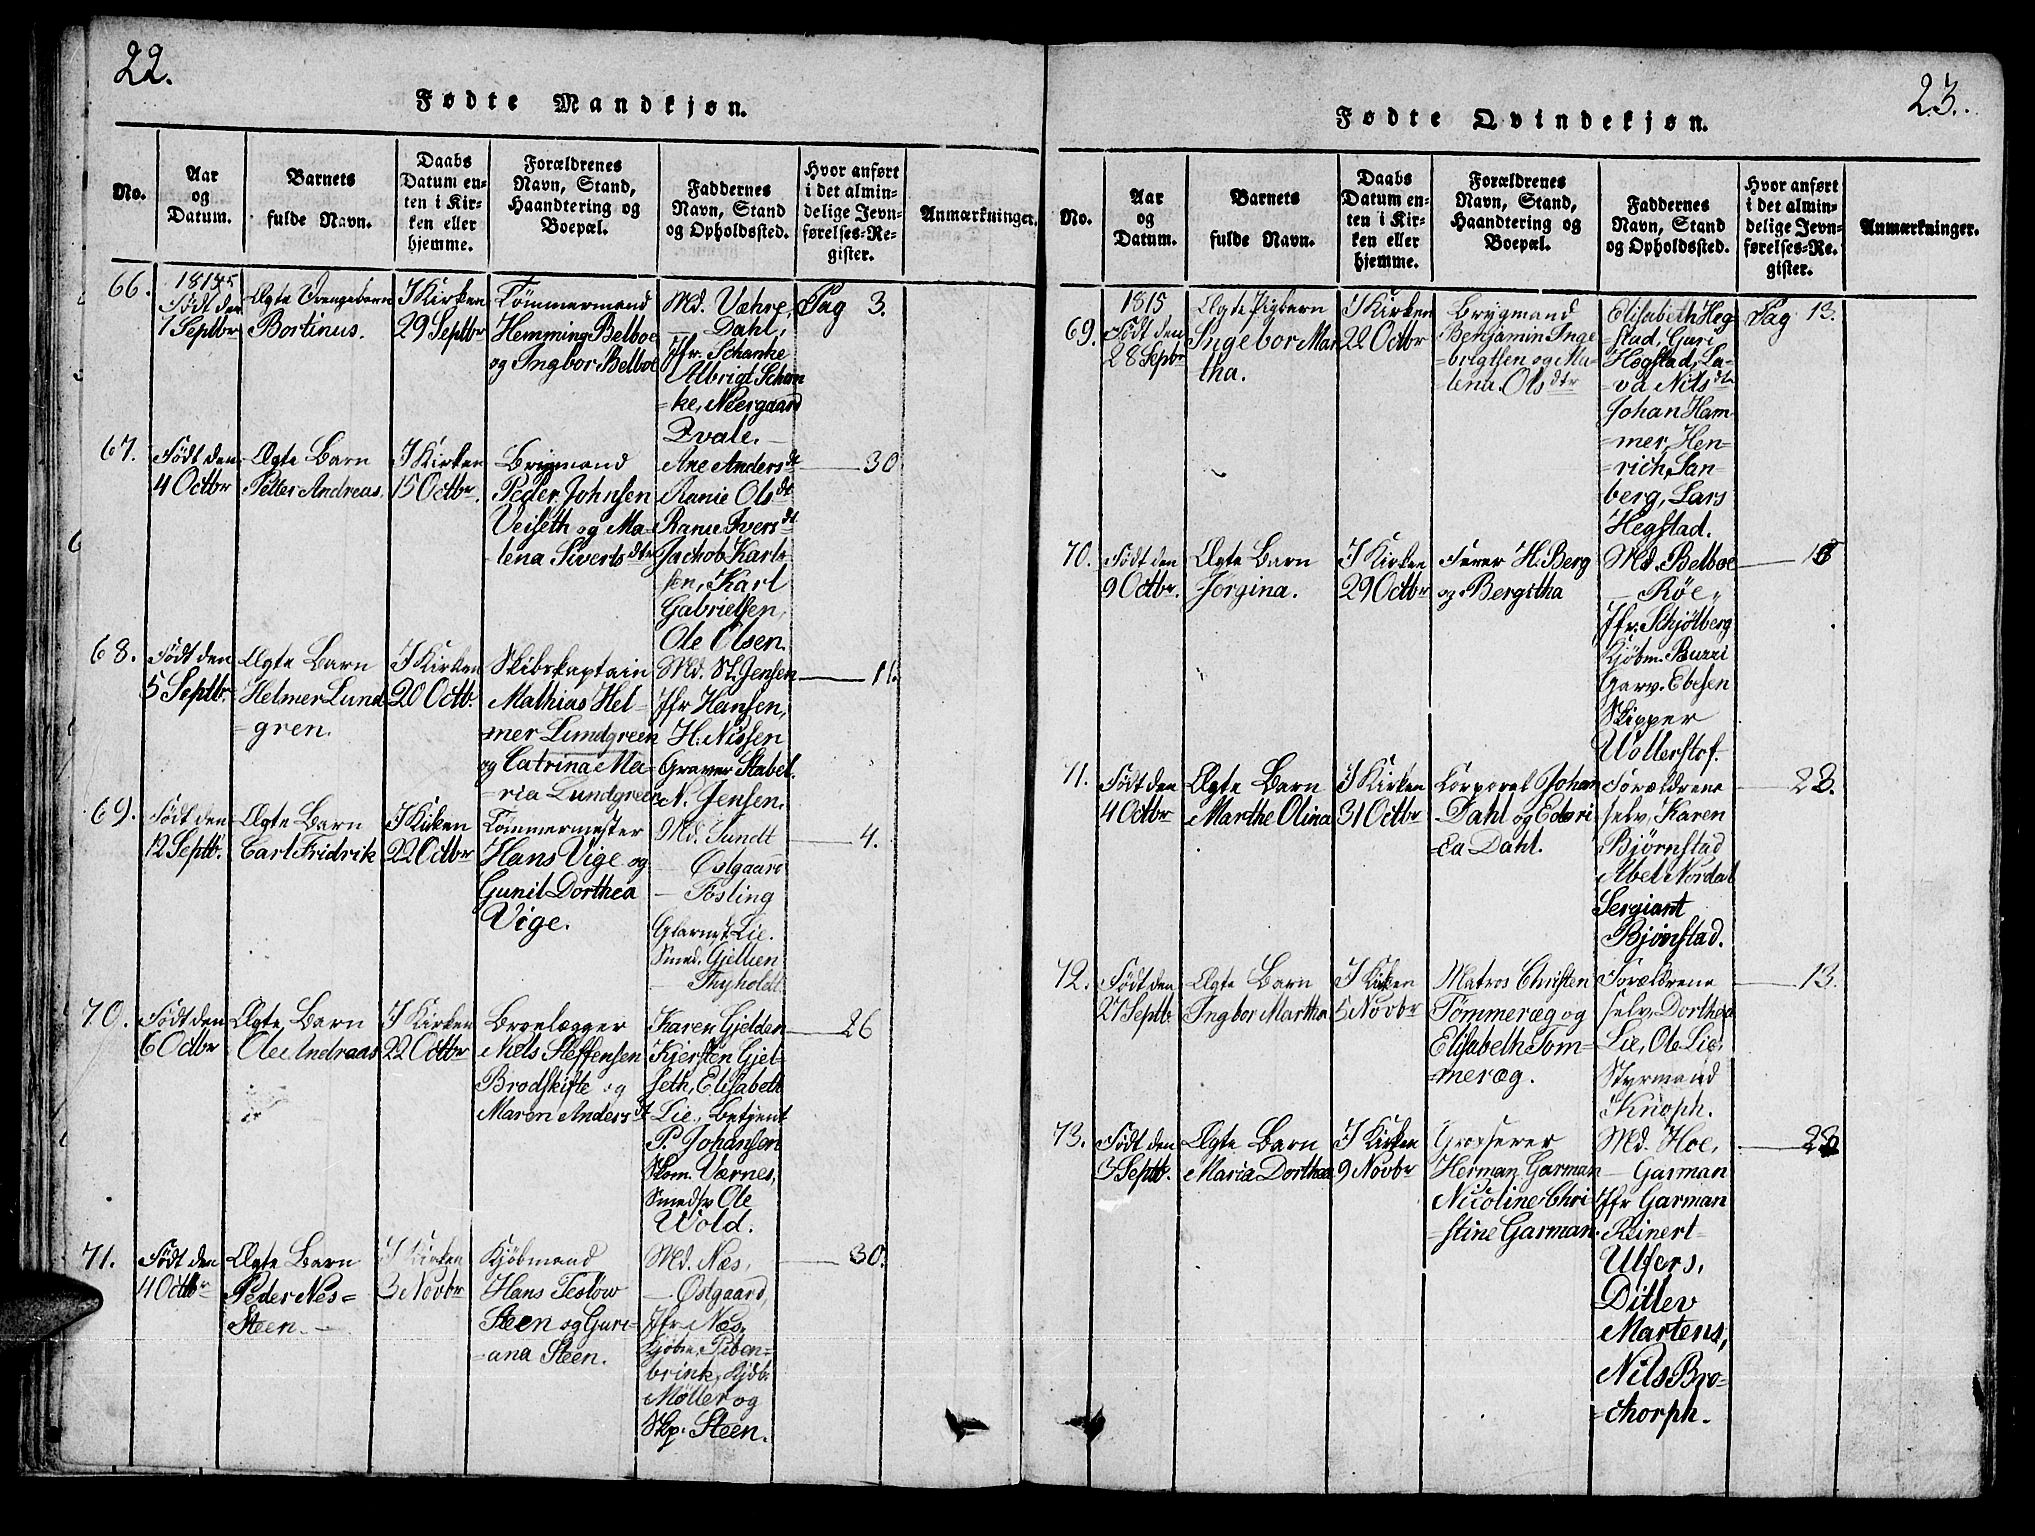 22.
Fødte Mandkjøn.
No.
Aar
og
Datum.
Barnets
fulde Navn.
Daabs
Datum en-
ten i Kir-
ken eller
hjemme.
Forældrenes
Navn, Stand,
Haandtering og
Boepæl.
Faddernes
Navn, Stand
og Opholdssted.
Hvor anført
i det almin-
delige Jevn-
førelses-Re-
gister.
Anmærkninger.
66.
1815
Født den
1 Septbr
Ægte Drengebarn
Bortinus.
I Kirken
29 Septbr
Tømmermand
Hemming Belboe
og Ingbor Belboe
Md. Væhre,
— Dahl,
Jfr. Schanke
Albrigt Schan
=ke, Neergaard
Qvale.
Pag 3.
67.
Født den
4 Octbr
Ægte Barn
Petter Andreas.
I Kirken
15 Octbr.
Brygmand
Peder Johnsen
Veiseth og Ma-
lena Siverts dtr
Ane Anders dt
Ranie Ols dt
Ranie Ivers dt
Jackob Karl-
sen, Karl
Gabrielsen,
Ole Olsen.
— 30
68.
Født den
5 Septbr.
Ægte Barn
Helmer Lund
=gren.
I Kirken
20 Octb.
Skibskaptain
Mathias Hel-
mer Lundgreen
og Catrina Ma-
=ria Lundgreen
Md. St. Jensen
Jfr Hansen,
H. Nissen
Graver Stabel.
N. Jensen.
— 11.
69.
Født den
12 Septb.
Ægte Barn
Carl Fridrik
I Kirken
22 Octbr
Tømmermester
Hans Vige og
Gunil Dorthea
Vige.
Md. Tundt
— Østgaard
— Fosling
Glarmst. Lie.
Smed. Gjellien
— Thyholdt
— 4.
70.
Født den
6 Octbr
Ægte Barn
Ole Andraas
I Kirken
22 Octbr
Broelægger
Niels Steffensen
Brodskifte og
Maren Anders dt
Karen Gjelden
Kiersten Gjel-
seth, Elisabeth
Lie, betjent
P. Johansen
Skom. Værnes,
Smedsv Ole
Wold.
— 26
71.
Født den
4 Octbr
Ægte Barn
Peder Nes=
Steen. —
I Kirken
3 Novbr
Kjøbmand
Hans Teslow
Steen og Guri-
=ana Steen.
Md. Næs,
— Østgaard,
Jfr Næs,
Kjøbm. Piben=
brink, Kjøb.
Møller og
Skp. Steen.
— 30.
23.
Fødte Qvindekjøn.
No.
Aar
og
Datum.
Barnets
fulde Navn.
Daabs
Datum en-
ten i Kir-
ken eller
hjemme.
Forældrenes
Navn, Stand,
Haandtering og
Boepæl.
Faddernes
Navn, Stand
og Opholdssted.
Hvor anført
i det almin-
delige Jevn-
førelses-Re-
gister.
Anmærkninger.
69.
1815
Født den
28 Sepbr
Ægte Pigbarn
Ingebor Mar
tha.
I Kirken
22 Octbr
Brygmand
Benjamin Inge
=brigtsen og Ma-
lena Ols dtr
Elisabeth Heg
=stad, Guri
Hegstad, La-
va Nils dtr
Johan Ham-
=mer, Hen-
=rich San-
berg, Lars
Hegstad.
Pag 13.
70.
Født den
9 Octbr.
Ægte Barn
Jørgina.
I Kirken
29 Octbr
Furer H. Berg
og Bergitha
Md. Belboe
— Røe,
Jfr. Schjølberg
Kjøbm. Buzzi
Garv. Ebesen
Skipper
Wollerstof.
71.
Født den
4 Octbr
Ægte Barn
Marthe Olina
I Kirken
31 Octbr
Corporal Johan
Dahl og Edvri
=ca Dahl.
Forældrene
selv, Karen
Bjørnstad
Abel Nordal
Sergiant
Bjørnstad.
— 23.
72.
Født den
27 Septb.
Ægte Barn
Ingbor Martha
I Kirken
5 Novbr
Matros Christen
Tømmeræg og
Elisabeth Tøm-
=meræg.
Forældrene
selv, Dorthea
Lie, Ole Lie,
Styrmand
Knoph.
— 13.
73.
Født den
3 Septb.
Ægte Barn
Maria Dorthea
I Kirken
9 Novbr
Grosserer
Herman Garman
Nicoline Chri-
=stine Garman.
Md. Hoe,
— Garman
Jfr Garman
Reinert
Ulfers,
Ditlev
Martens,
Nils Bro=
=chorph.